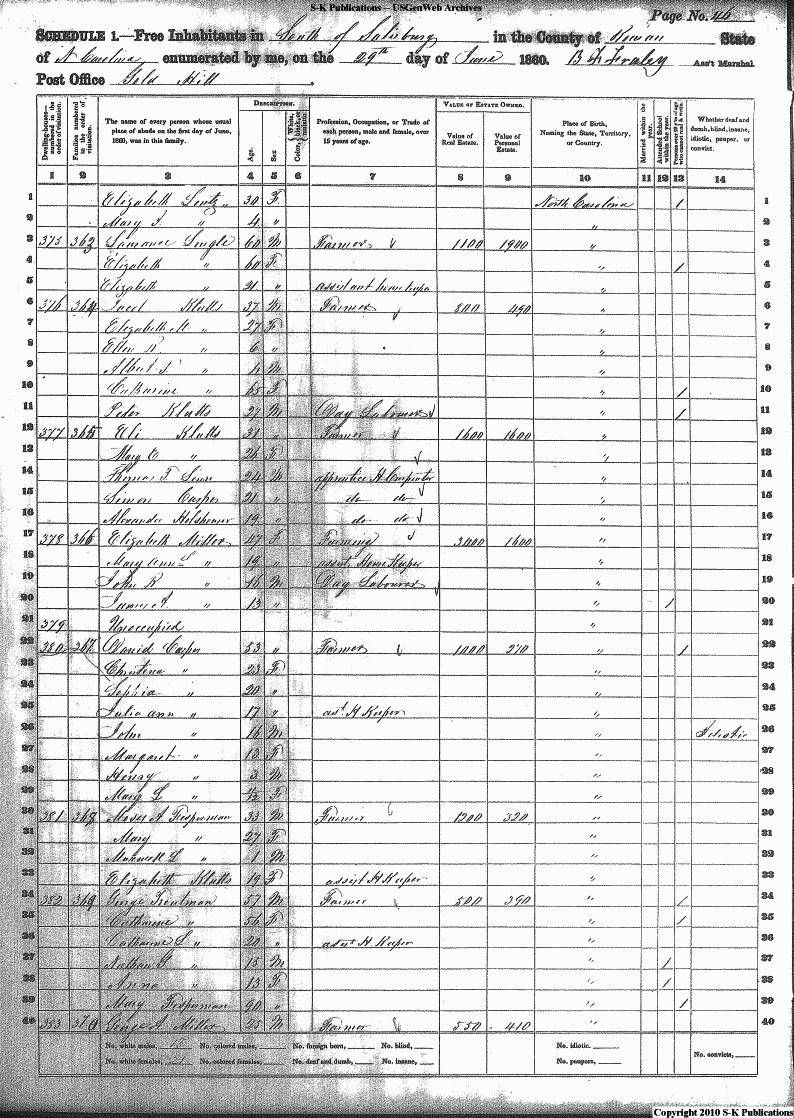 S-K Publications – USGenWeb Archives
Page No. 46
SCHEDULE 1.—Free Inhabitants in South of Salisbury in the County of Rowan State
of N Carolina enumerated by me, on the 29th day of June 1860. Ass't Marshal
Post Office Gold Hill.
Dwelling-houses—numbered in the order of visitation.
Families numbered in the order of visitation.
The name of every person whose usual place of abode on the first day of June, 1860, was in this family.
DESCRIPTION.
Age.
Sex
Color, White, black, or mulatto.
Profession, Occupation, or Trade of each person, male and female, over 15 years of age.
VALUE OF ESTATE OWNED.
Value of Real Estate.
Value of Personal Estate.
Place of Birth, Naming the State, Territory, or Country.
Married within the year.
Attended School within the year.
Persons over 20 y'rs of age who cannot read & write.
Whether deaf and dumb, blind, insane, idiotic, pauper, or convict.
1 2 3 4 5 6 7 8 9 10 11 12 13 14
1 Elizabeth Lentz 30 F North Carolina / 1
2 Mary J. " 4 " " 2
3 375 362 Lingle 60 M Farmer 1100 1900 " 3
4 Elizabeth " 60 F " / 4
5 Elizabeth " 21 " assistant house keeper " 5
6 376 364 Klutts 37 M Farmer 800 490 " 6
7 Elizabeth M " 27 F " 7
8 Ellen R " 6 " " 8
9 Albert S " 4 M " 9
10 Catharine " 65 F " / 10
11 Peter Klutts 27 M Day Labourer " / 11
12 377 365 Eli Klutts 31 " Farmer 1600 1600 " 12
13 Mary C " 26 F " 13
14 Thomas T. 24 M apprentice H Carpenter " 14
15 Simon Casper 21 " do do " 15
16 Alexander Holshouser 19 " do do " 16
17 378 366 Elizabeth Miller 47 F Farming 3400 1600 " 17
18 Mary Ann L " 19 " assist House Keeper " 18
19 John R " 16 M Day Labourer " 19
20 James A. " 13 " " / 20
21 379 Unoccupied " 21
22 380 367 David Casper 53 " Farmer 1000 270 " / 22
23 Christena " 23 F " 23
24 Sophia " 20 " " 24
25 Julia ann " 17 " ast H Keeper " 25
26 John " 16 M " Idiotic 26
27 Margaret " 13 F " 27
28 Henry " 3 M " 28
29 Mary L " F " 29
30 381 368 Moses A. Fesperman 33 M Farmer 1200 320 " 30
31 Mary " 27 F " 31
32 Maxwell L " 1 M " 32
33 Elizabeth Klutts 19 F assist H Keeper " 33
34 382 369 George Troutman 57 M Farmer 500 390 " / 34
35 Catharine " 56 F " / 35
36 Catharine L " 20 " assist H Keeper " 36
37 Nathan G. " 15 M " / 37
38 Anna " 13 F " / 38
39 Mary Fesperman 90 " " / 39
40 383 370 George A. Miller 25 M Farmer 550 410 " 40
No. white males, No. colored males, No. foreign born, No. blind, No. idiotic,
No. white females, No. colored females, No. deaf and dumb, No. insane, No. paupers, No. convicts,
Copyright 2010 S-K Publications